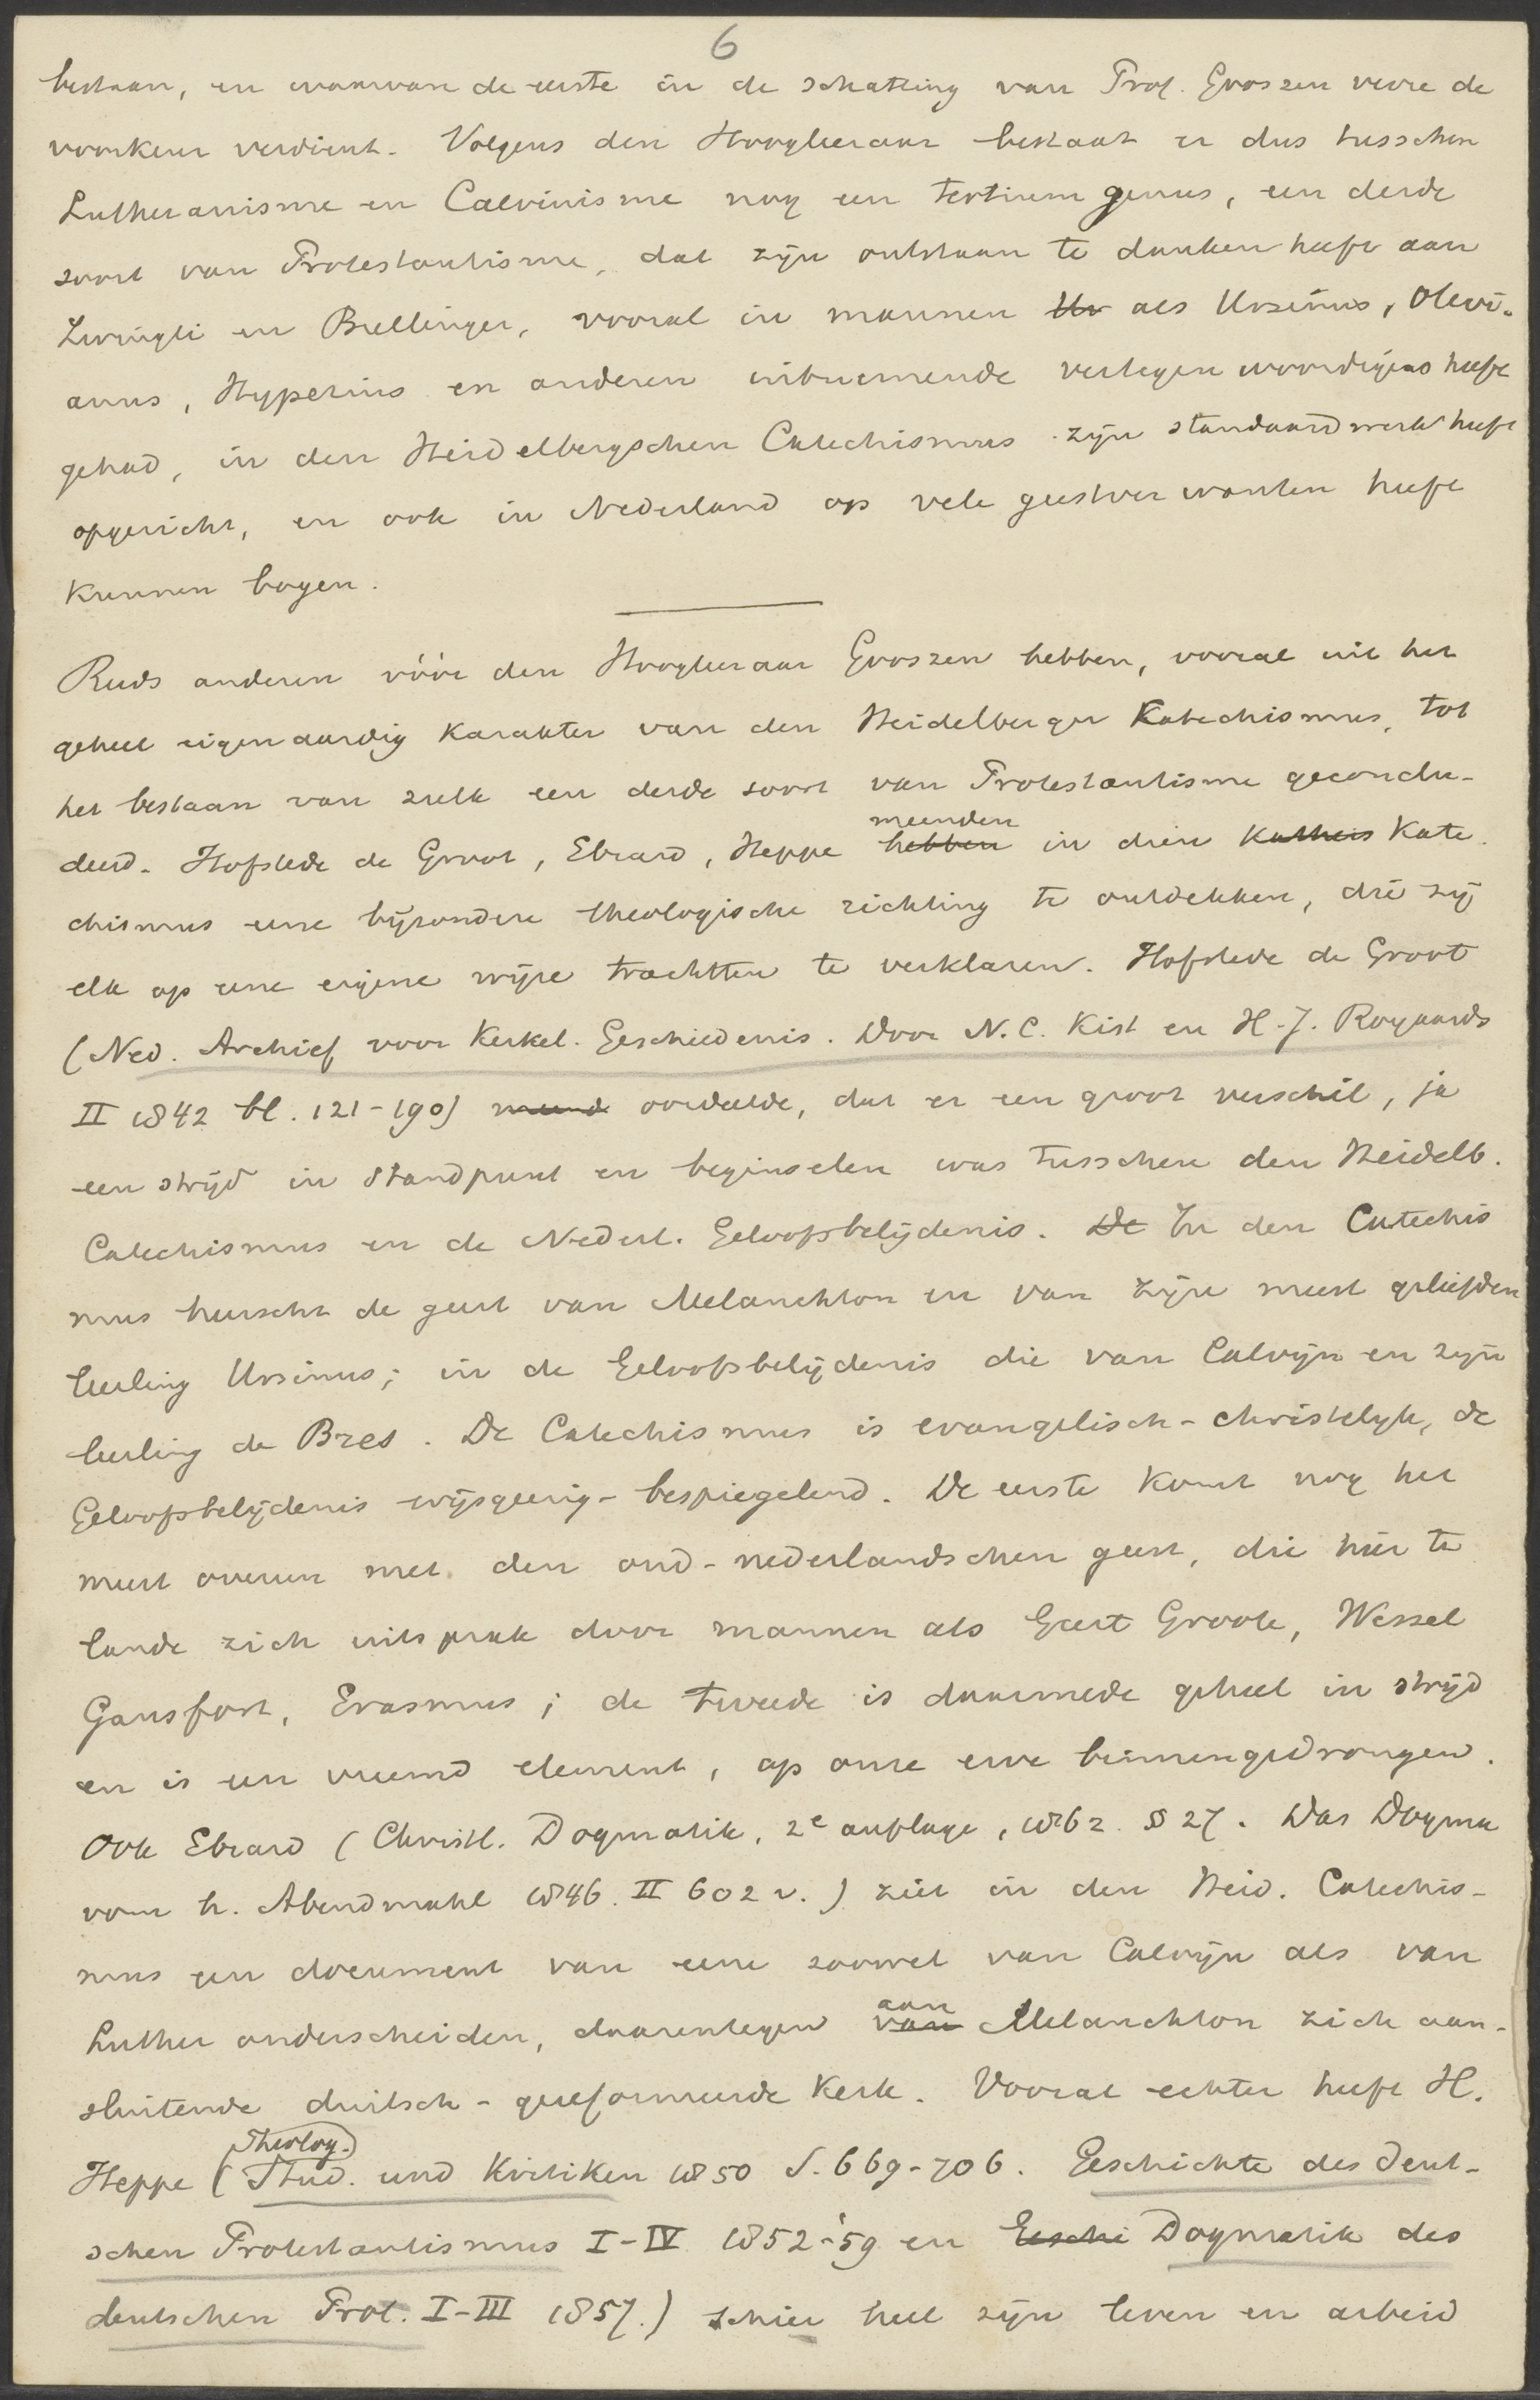 6
bestaan, en waarvan de eerste in de schatting van Prof. Gooszen verre de
voorkeur verdient. Volgens den Hoogleeraar bestaat er dus tusschen
Lutheranisme en Calvinisme nog een tertium genus, een derde
soort van Protestantisme, dat zijn ontstaan te danken heeft aan
Zwingli en Bullinger, vooral in mannen Ur als Ursinus, Olevi-
anus, Hyperius en anderen uitnemende vertegenwoordigers heeft
gehad, in den Heidelbergschen Catechismus zijn standaardwerk heeft
opgericht, en ook in Nederland op vele geestverwanten heeft
kunnen bogen.
Reeds anderen vóór den Hoogleeraar Gooszen hebben, vooral uit het
geheel eigenaardig karakter van den Heidelberger Katechismus, tot
het bestaan van zulk een derde soort van Protestantisme geconclu-
deerd. Hofstede de Groot, Ebrard, Heppe hebben meenden in dien Katheis Kate-
chismus eene bijzondere theologische richting te ontdekken, die zij
elk op eene eigene wijze trachtten te verklaren. Hofstede de Groot
(Ned. Archief voor Kerkel. Geschiedenis. Door N.C. Kist en H.J. Royaards
II 1842 bl. 121-190) meende oordeelde, dat er een groot verschil, ja
een strijd in standpunt en beginselen was tusschen den Heidelb.
Catechismus en de Nederl. Geloofsbelijdenis. De In den Catechis
mus heerscht de geest van Melanchton en van zijn meest geliefden
leerling Ursinus; in de Geloofsbelijdenis die van Calvijn en zijn
leerling de Bres. De Catechismus is evangelisch-christelijk, de
Geloofsbelijdenis wijsgeerig-bespiegelend. De eerste komt nog het
meest overeen met den oud-nederlandschen geest, die hier te
lande zich uitsprak door mannen als Geert Groote, Wessel
Gansfort, Erasmus; de tweede is daarmede geheel in strijd
en is een vreemd element, op onze erve binnengedrongen.
Ook Ebrard (Christl. Dogmatik, 2e auflage, 1862 § 27. Das Dogma
vom h. Abendmahl 1846 II 602 v.) ziet in den Heid. Catechis-
mus een document van eene zoowel van Calvijn als van
Luther onderscheiden, daarentegen van aan Melanchton zich aan-
sluitende duitsch-gereformeerde kerk. Vooral echter heeft H.
Heppe (Theolog. Stud. und Kritiken 1850 S. 669-706. Geschichte des deut-
schen Protestantismus I-IV 1852-'59 en Geschi Dogmatik des
deutschen Prot. I-III 1857.) schier heel zijn leven en arbeid